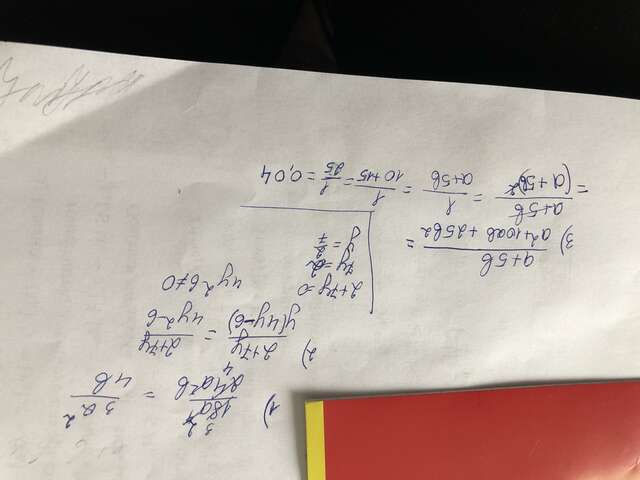 1) 18a⁴ / 24a²b = 3a² / 4b
3
4
2) 2+7y / y(4y-6) = 2+7y / 4y²-6
2+7y=0 4y²6≠0
7y=2
y=2/7
3) a+5b / a²+10ab+25b² =
= a+5b / (a+5b)² = 1 / a+5b = 1 / 10+15 = 1/25 = 0,04